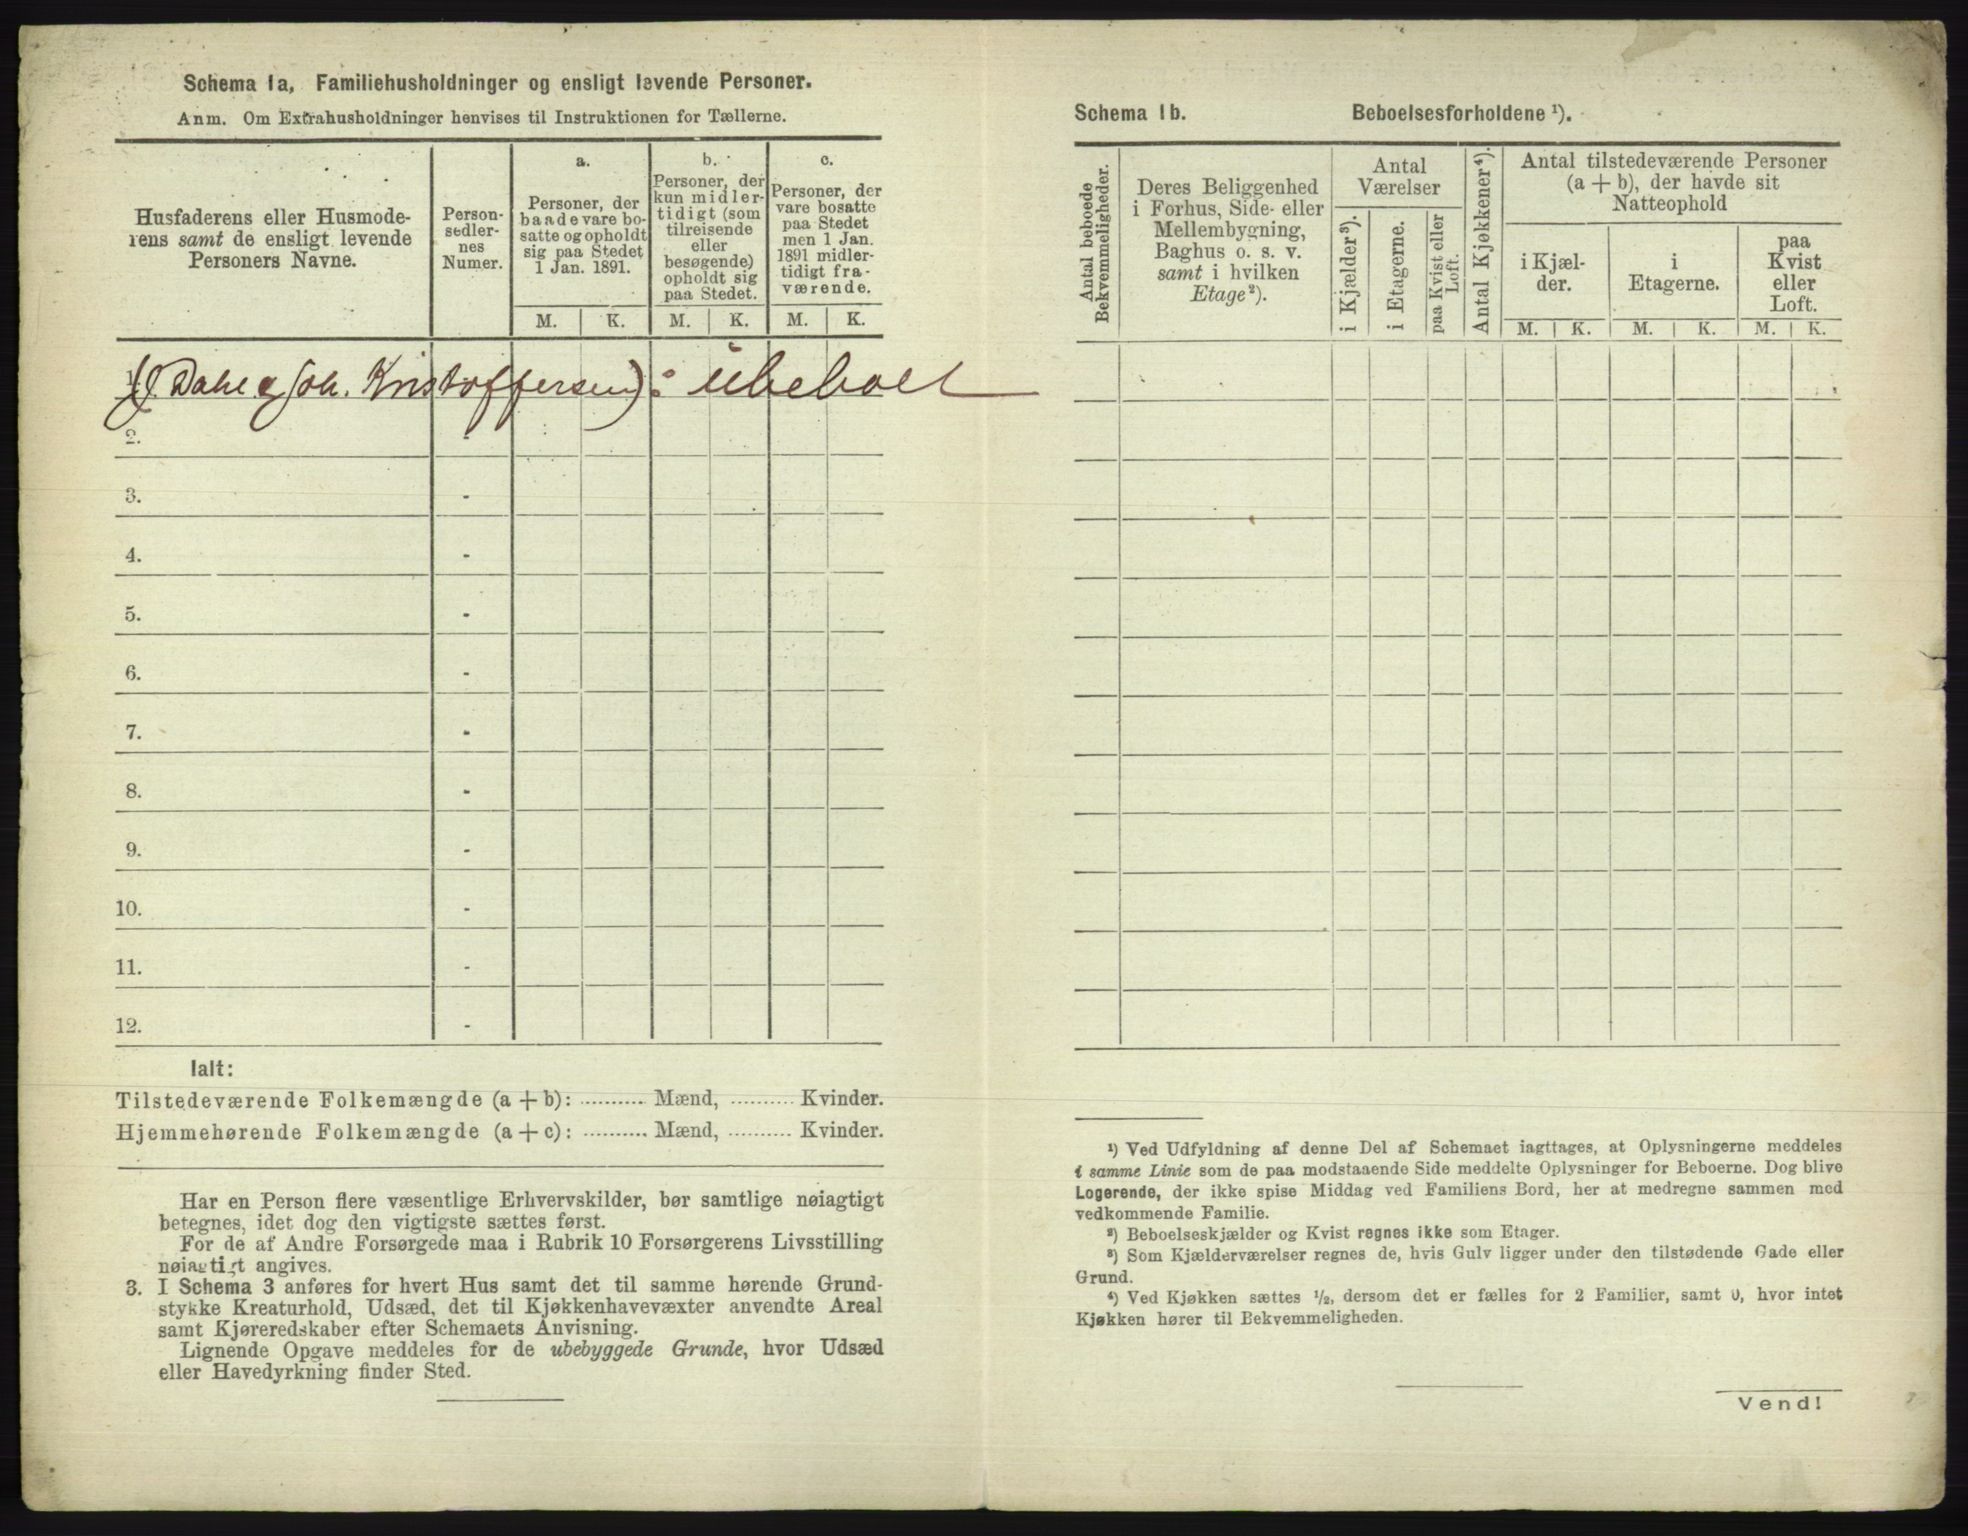 Schema 1a, Familiehusholdninger og ensligt levende Personer.
Anm. Om Extrahusholdninger henvises til Instruktionen for Tællerne.
Husfaderens eller Husmode-
rens samt de ensligt levende
Personers Navne.
Person-
sedler-
nes
Numer.
a.
Personer, der
baade vare bo-
satte og opholdt
sig paa Stedet
1 Jan. 1891.
b.
Personer, der
kun midler-
tidigt (som
tilreisende
eller
besøgende)
opholdt sig
paa Stedet.
c.
Personer, der
vare bosatte
paa Stedet
men 1 Jan.
1891 midler-
tidigt fra-
værende.
M. K. M. K. M. K.
Dahl og Joh. Kristoffersen): ubeboet
2. -
3. -
4. -
5. -
6. -
7. -
8. -
9. -
10. -
11. -
12. -
Ialt:
Tilstedeværende Folkemængde (a + b): .......... Mænd, .......... Kvinder.
Hjemmehørende Folkemængde (a + c): .......... Mænd, .......... Kvinder.
Har en Person flere væsentlige Erhvervskilder, bør samtlige nøiagtigt
betegnes, idet dog den vigtigste sættes først.
For de af Andre Forsørgede maa i Rubrik 10 Forsørgerens Livsstilling
nøiagtigt angives.
3. I Schema 3 anføres for hvert Hus samt det til samme hørende Grund-
stykke Kreaturhold, Udsæd, det til Kjøkkenhavevæxter anvendte Areal
samt Kjøreredskaber efter Schemaets Anvisning.
Lignende Opgave meddeles for de ubebyggede Grunde, hvor Udsæd
eller Havedyrkning finder Sted.
Schema 1b. Beboelsesforholdene ¹).
Antal beboede
Bekvemmeligheder.
Deres Beliggenhed
i Forhus, Side- eller
Mellembygning,
Baghus o. s. v.
samt i hvilken
Etage²).
Antal
Værelser
i Kjælder³).
i Etagerne.
paa Kvist eller
Loft.
Antal Kjøkkener⁴).
Antal tilstedeværende Personer
(a + b), der havde sit
Natteophold
i Kjæl-
der.
i
Etagerne.
paa
Kvist
eller
Loft.
M. K. M. K. M. K.
¹) Ved Udfyldning af denne Del af Schemaet iagttages, at Oplysningerne meddeles
i samme Linie som de paa modstaaende Side meddelte Oplysninger for Beboerne. Dog blive
Logerende, der ikke spise Middag ved Familiens Bord, her at medregne sammen med
vedkommende Familie.
²) Beboelseskjælder og Kvist regnes ikke som Etager.
³) Som Kjælderværelser regnes de, hvis Gulv ligger under den tilstødende Gade eller
Grund.
⁴) Ved Kjøkken sættes ½, dersom det er fælles for 2 Familier, samt 0, hvor intet
Kjøkken hører til Bekvemmeligheden.
Vend!